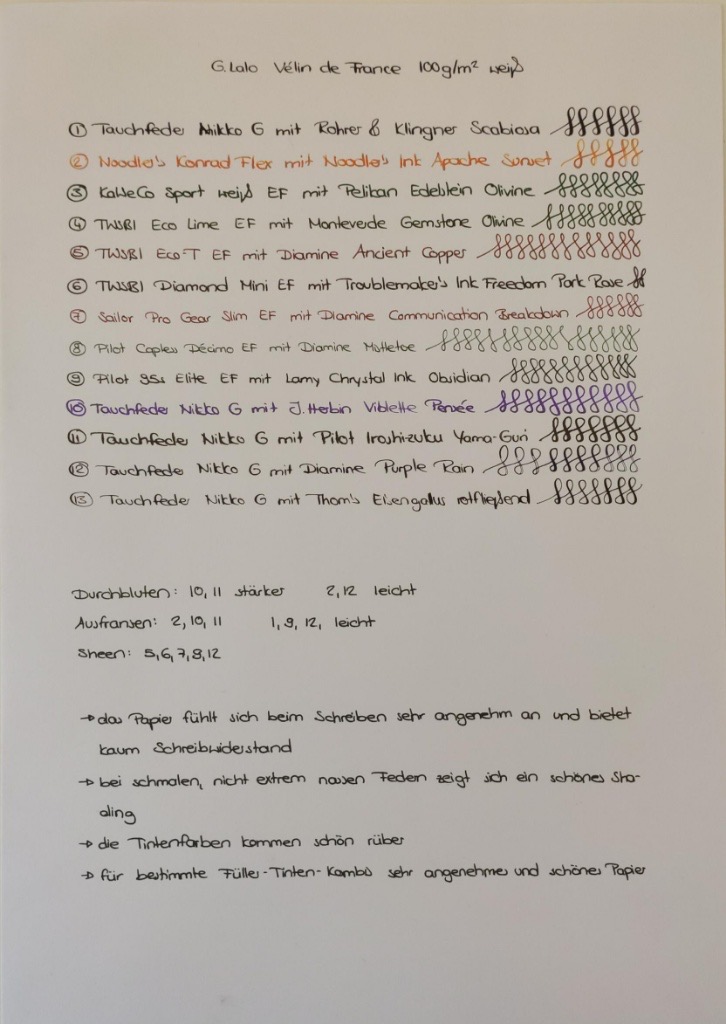 G. Lalo Vélin de France 100g/m² weiß
① Tauchfeder Nikko G mit Rohrer & Klingner Scabiosa
② Noodler's Konrad Flex mit Noodler's Ink Apache Sunset
③ KaWeCo Sport weiß EF mit Pelikan Edelstein Olivine
④ TWSBI Eco Lime EF mit Monteverde Gemstone Olivine
⑤ TWSBI Eco-T EF mit Diamine Ancient Copper
⑥ TWSBI Diamond Mini EF mit Troublemaker's Ink Freedom Park Rose
⑦ Sailor Pro Gear Slim EF mit Diamine Communication Breakdown
⑧ Pilot Capless Décimo EF mit Diamine Mistletoe
⑨ Pilot 95s Elite EF mit Lamy Chrystal Ink Obsidian
⑩ Tauchfeder Nikko G mit J. Herbin Violette Pensée
⑪ Tauchfeder Nikko G mit Pilot Iroshizuku Yama-Guri
⑫ Tauchfeder Nikko G mit Diamine Purple Rain
⑬ Tauchfeder Nikko G mit Thom's Eisengallus rotfließend
Durchbluten: 10, 11 stärker 2, 12 leicht
Ausfransen: 2, 10, 11 1, 9, 12, leicht
Sheen: 5, 6, 7, 8, 12
→ das Papier fühlt sich beim Schreiben sehr angenehm an und bietet
kaum Schreibwiderstand
→ bei schmalen, nicht extrem nassen Federn zeigt sich ein schönes Sha-
ding
→ die Tintenfarben kommen schön rüber
→ für bestimmte Füller-Tinten-Kombis sehr angenehmes und schönes Papier